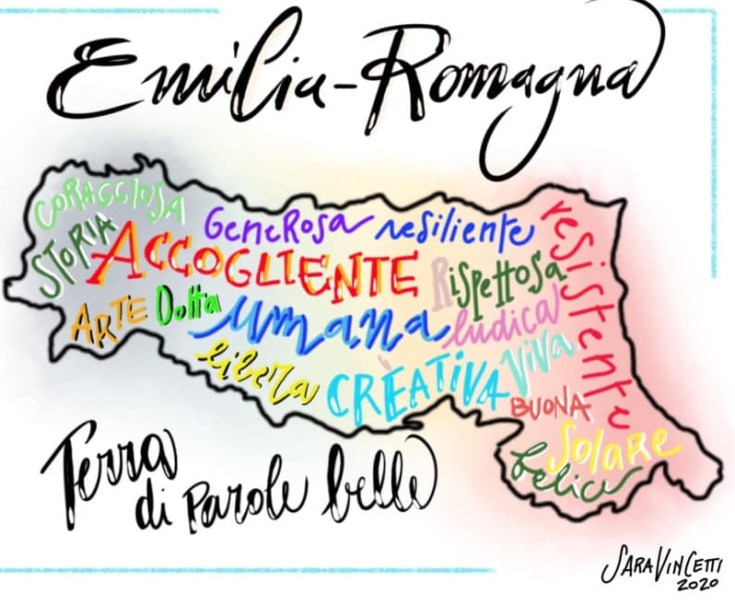 Emilia-Romagna
CORAGGIOSA
STORIA
GENEROSA
resiliente
resistente
ACCOGLIENTE
Rispettosa
ARTE
Dotta
umana
ludica
libera
CREATIVA
VIVA
BUONA
SOLARE
felice
Terra
di Parole belle
SARA VINCETTI
2020